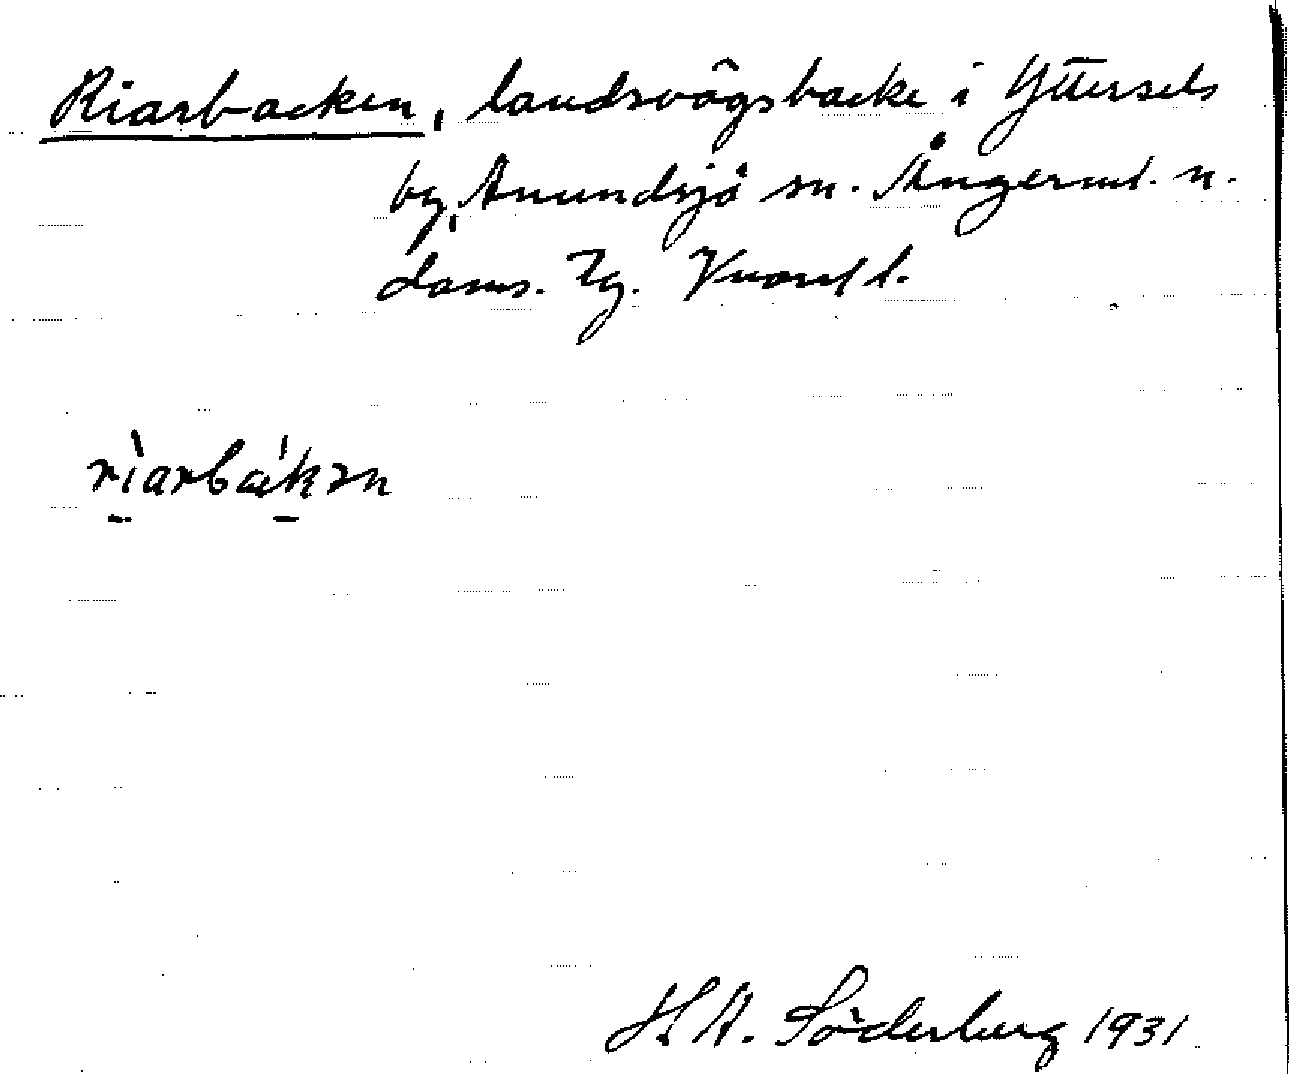 Riarbacken, landsvägsbacke i Yttersels
by, Anundsjö sn. Ångerml. n.
doms. Tg. Vnorrl.
riarbakən
H. A. Söderberg 1931